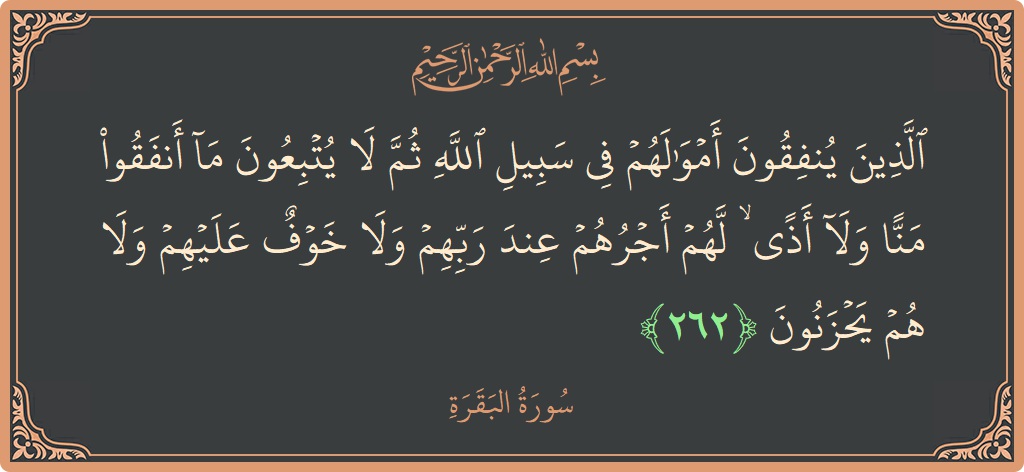 بِسْمِ اللَّهِ الرَّحْمَٰنِ الرَّحِيمِ
ٱلَّذِينَ يُنفِقُونَ أَمۡوَٰلَهُمۡ فِي سَبِيلِ ٱللَّهِ ثُمَّ لَا يُتۡبِعُونَ مَآ أَنفَقُواْ
مَنّٗا وَلَآ أَذٗى ۙ لَّهُمۡ أَجۡرُهُمۡ عِندَ رَبِّهِمۡ وَلَا خَوۡفٌ عَلَيۡهِمۡ وَلَا
هُمۡ يَحۡزَنُونَ ﴿٢٦٢﴾
سُورَةُ البَقَرَةِ